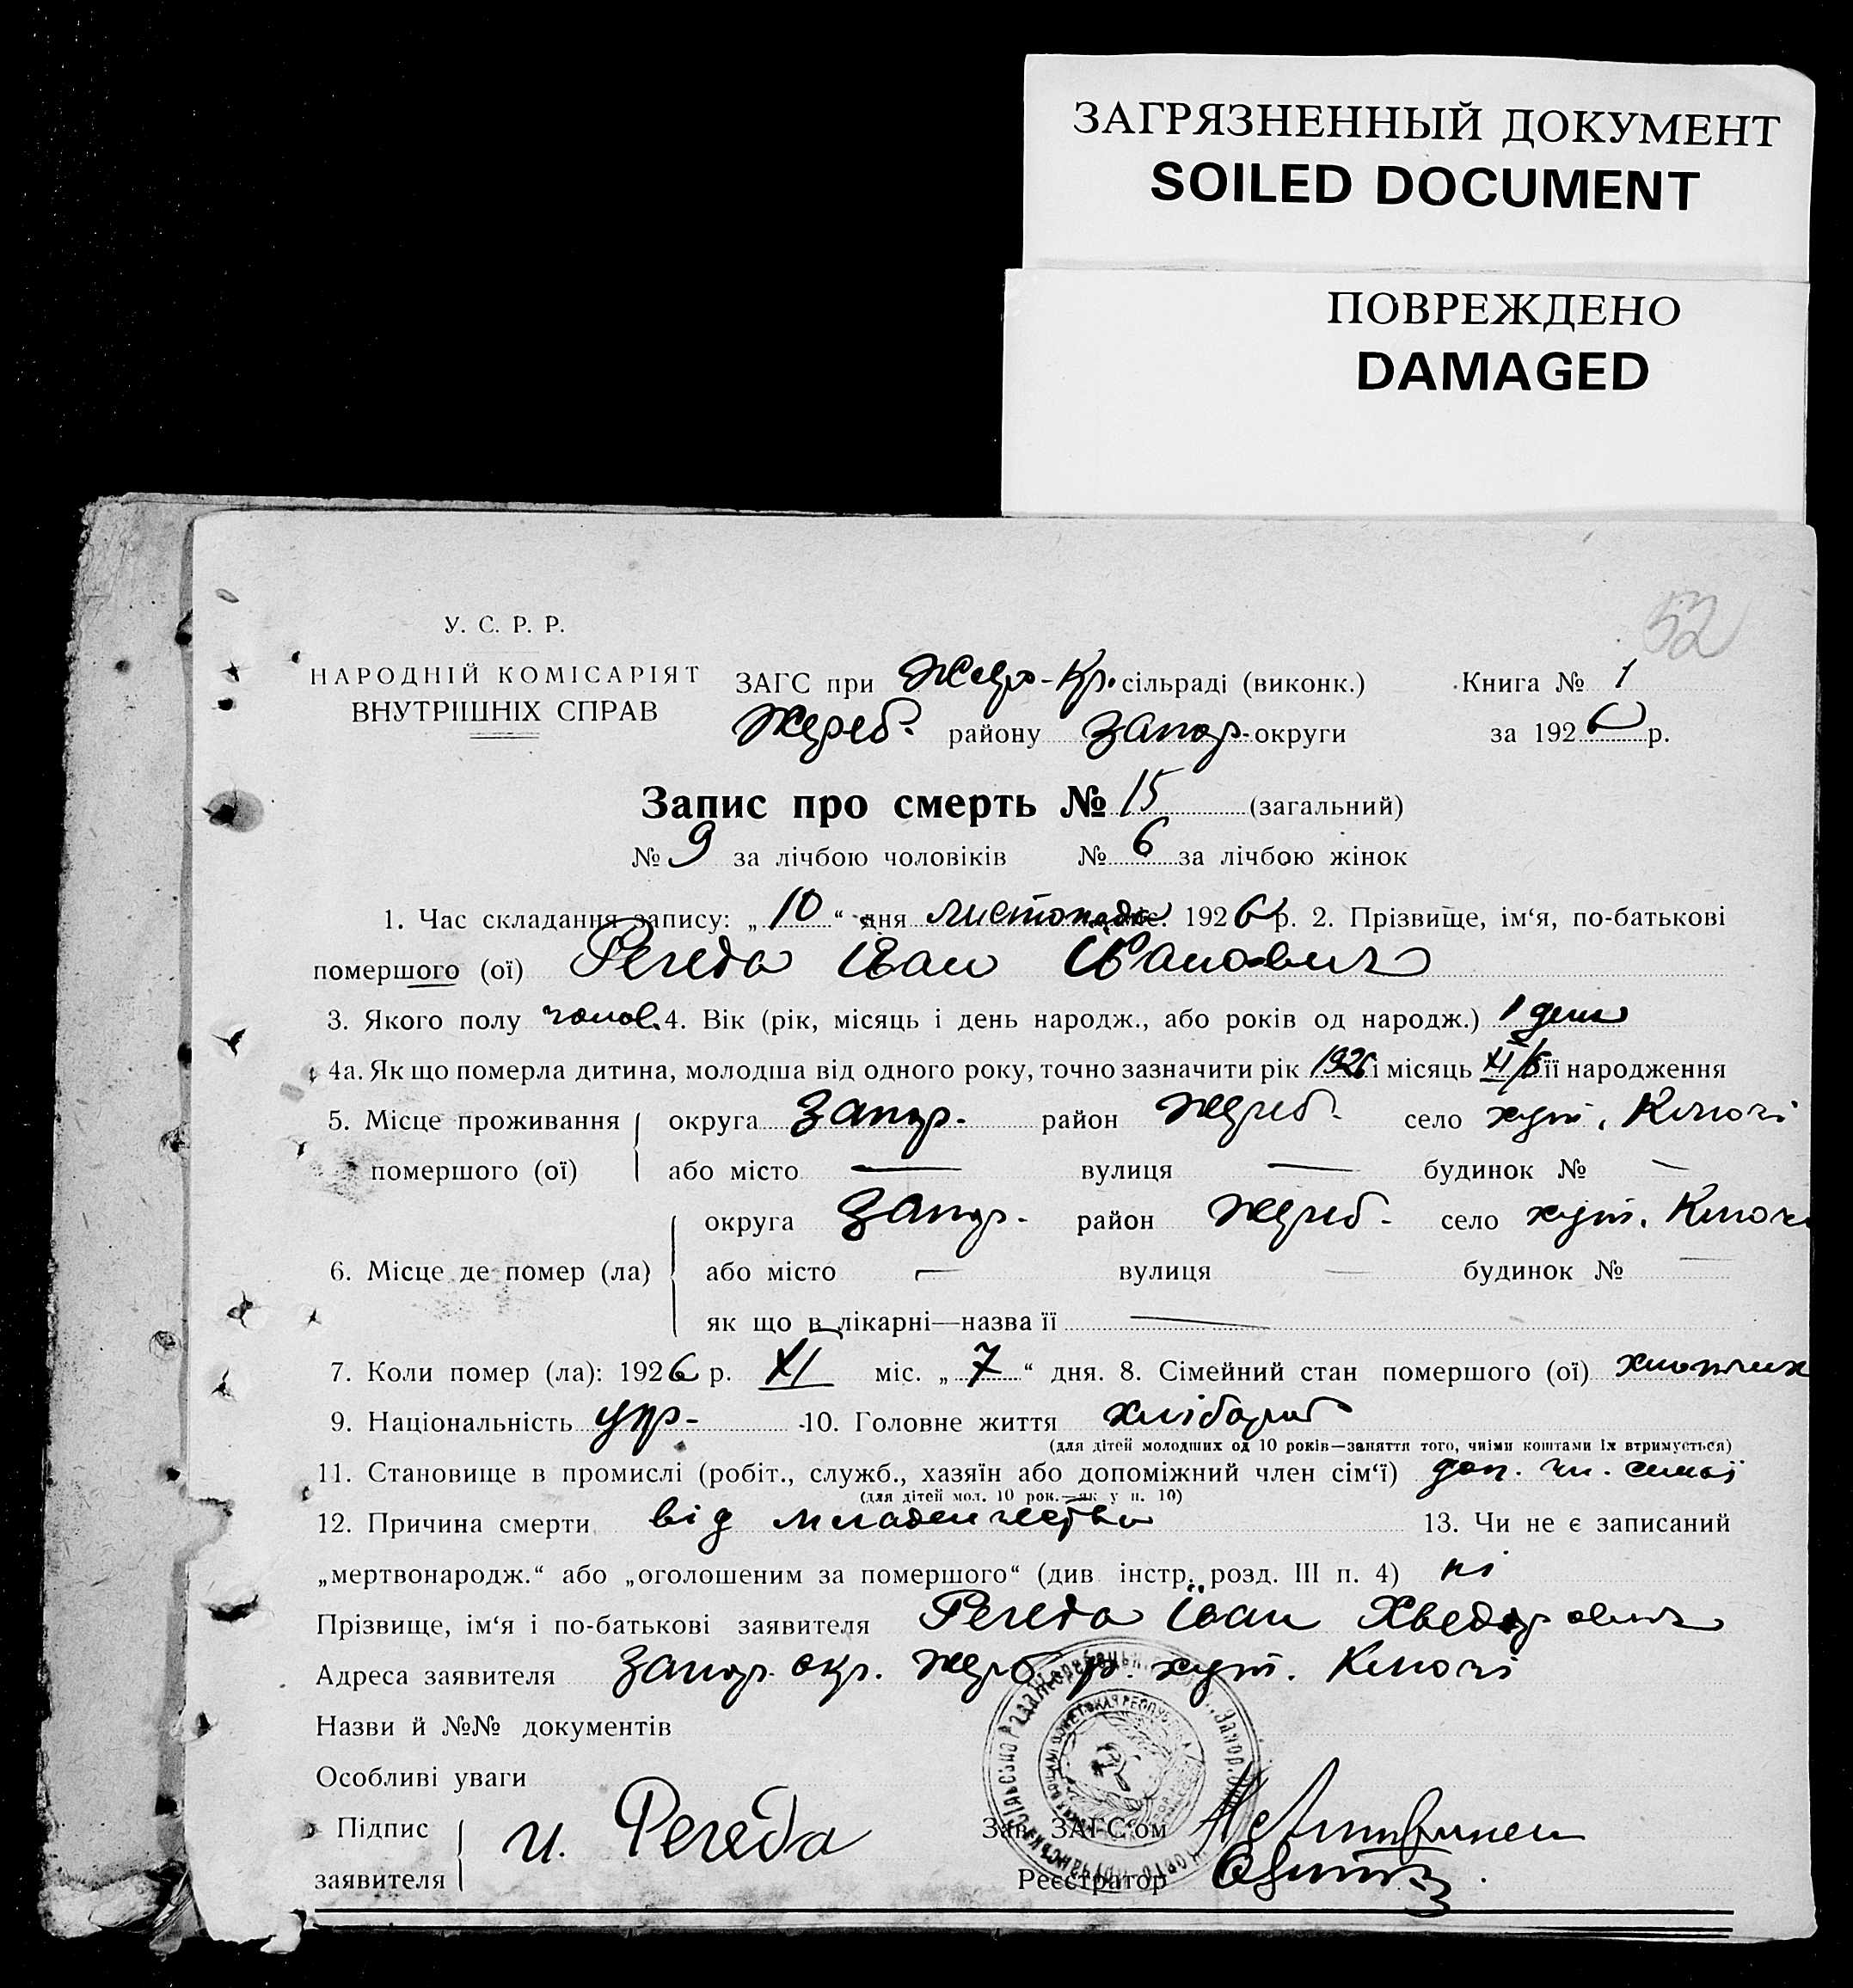 ЗАГРЯЗНЕННЫЙ ДОКУМЕНТ
SOILED DOCUMENT
ПОВРЕЖДЕНО
DAMAGED
52
У. С. Р. Р.
НАРОДНІЙ КОМІСАРІЯТ
ВНУТРІШНІХ СПРАВ
ЗАГС при Жере-Кр. сільраді (виконк.) Книга № 1
Жереб. району Запор. округи за 1926 р.
Запис про смерть № 15 (загальний)
№ 9 за лічбою чоловіків № 6 за лічбою жінок
1. Час складання запису: „10“ дня листопада міс. 1926 р. 2. Прізвище, ім‘я, по-батькові
помершого (ої) Регеда Іван Іванович
3. Якого полу чолов. 4. Вік (рік, місяць і день народж., або років од народж.) 1 день
4а. Як що померла дитина, молодша від одного року, точно зазначити рік 1926 і місяць XI/6 її народження
5. Місце проживання округа Запор. район Жереб. село хут. Клюочі
помершого (ої) або місто — вулиця — будинок № —
округа Запор. район Жереб. село хут.
6. Місце де помер (ла) або місто — вулиця — будинок № —
як що в лікарні—назва її —
7. Коли помер (ла): 1926 р. XI міс. „7“ дня. 8. Сімейний стан помершого (ої) хлопчик
9. Національність укр- 10. Головне життя хлібороб
(для дітей молодших од 10 років—заняття того, чиїми коштами їх втримується)
11. Становище в промислі (робіт., служб., хазяїн або допоміжний член сім‘ї) доп. чл. семьї
(для дітей мол. 10 рок.—як у п. 10)
12. Причина смерти від младенчества 13. Чи не є записаний
„мертвонародж.“ або „оголошеним за помершого“ (див інстр. розд. III п. 4) ні
Прізвище, ім‘я і по-батькові заявителя Регеда Іван Хведорович
Адреса заявителя Запор. окр. Жереб. р. хут.
Назви й №№ документів
Особливі уваги
Підпис заявителя И. Регеда
Зав. ЗАГС‘ом
Реєстратор